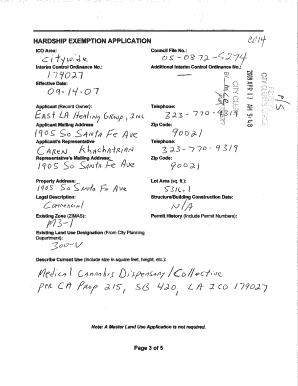 2014
HARDSHIP EXEMPTION APPLICATION
ICO Area: Council File No.:
Citywide 05-0872-S274
Interim Control Ordinance No.: Additional Interim Control Ordinance No.:
179027
Effective Date:
09-14-07
Applicant (Record Owner): Telephone:
East LA Healing Group, Inc 323-770-9319
Applicant Mailing Address Zip Code:
1905 So Santa Fe Ave 90021
Applicant's Representative Telephone:
Caren Khachatrian 323-770-9319
Representative's Mailing Address: Zip Code:
1905 So Santa Fe Ave 90021
Property Address: Lot Area (sq. ft.):
1905 So Santa Fe Ave 5316.1
Legal Description: Structure/Building Construction Date:
Commercial N/A
Existing Zone (ZIMAS): Permit History (Include Permit Numbers):
M3-1
Existing Land Use Designation (From City Planning
Department):
300-V
Describe Current Use (include size in square feet, height, etc.):
Medical Cannabis Dispensary/Collective
per CA Prop 215, SB 420, LA ICO 179027
Note: A Master Land Use Application is not required.
Page 3 of 5